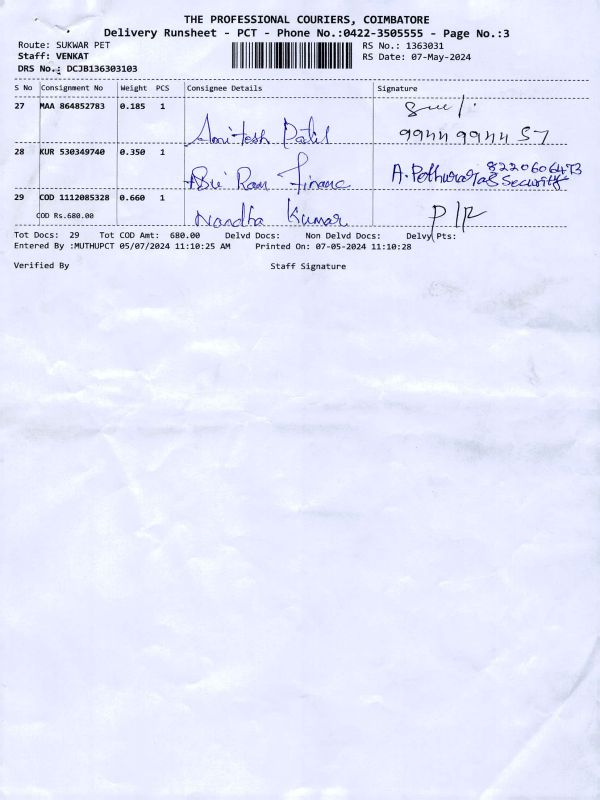 THE PROFESSIONAL COURIERS, COIMBATORE
Delivery Runsheet - PCT - Phone No.:0422-3505555 - Page No.:3
Route: SUKWAR PET
RS No.: 1363031
Staff: VENKAT
RS Date: 07-May-2024
DRS No.: DCJB136303103
S No Consignment No Weight PCS Consignee Details Signature
27 MAA 864852783 0.185 1
Amitosh Patil
9944 9944 57
28 KUR 530349740 0.350 1
Sri Ram Financ
8220606473
A. Pothuraraj Security
29 COD 1112085328 0.660 1
COD Rs.680.00
Nandha Kumar
P/R
Tot Docs: 29 Tot COD Amt: 680.00 Delvd Docs: Non Delvd Docs: Delvy Pts:
Entered By :MUTHUPCT 05/07/2024 11:10:25 AM Printed On: 07-05-2024 11:10:28
Verified By Staff Signature